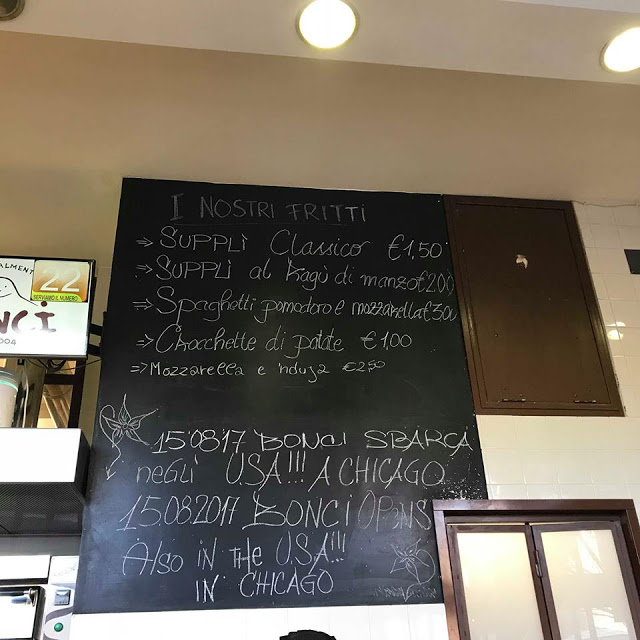 I NOSTRI FRITTI
⇒ SUPPLÌ Classico €1,50
⇒ SUPPLÌ al Ragù di manzo €2.00
⇒ Spaghetti pomodoro e mozzarella €3.00
⇒ Crocchette di patate €1,00
⇒ MOZZARELLA e 'nduja €2,50
150817 BONCI SBARCA
neGLI U.S.A!!! A CHICAGO
15082017 BONCI OPENS
Also IN THE U.S.A!!!
IN CHICAGO
22
SERVIAMO IL NUMERO
NCI
004